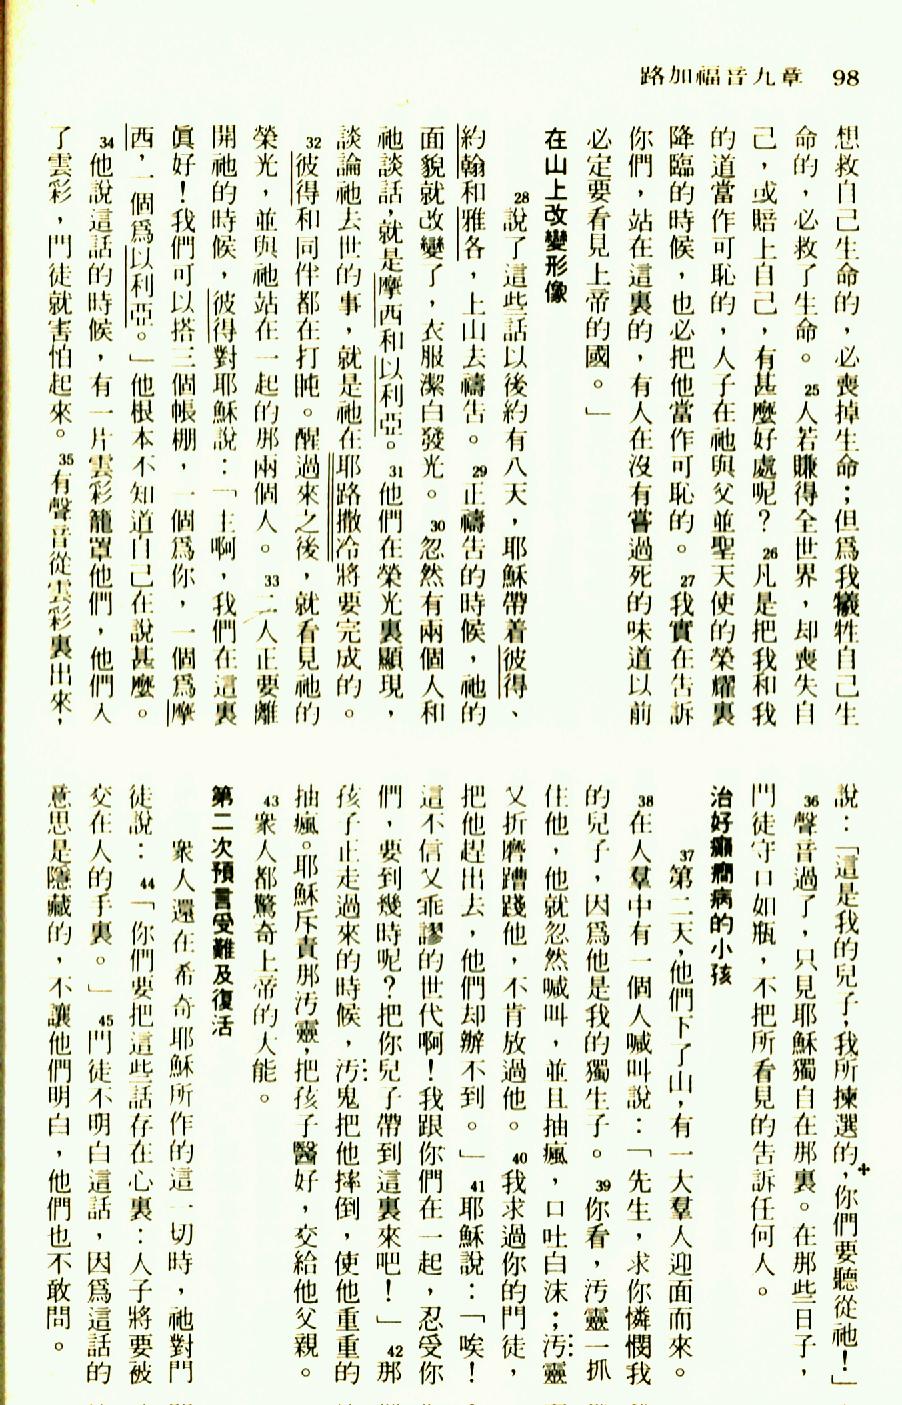 路加福音九章 98
想救自己生命的，必喪掉生命；但爲我犧牲自己生
命的，必救了生命。25人若賺得全世界，却喪失自
己，或賠上自己，有甚麼好處呢？26凡是把我和我
的道當作可恥的，人子在祂與父並聖天使的榮耀裏
降臨的時候，也必把他當作可恥的。27我實在告訴
你們，站在這裏的，有人在沒有嘗過死的味道以前
必定要看見上帝的國。」
在山上改變形像
28說了這些話以後約有八天，耶穌帶着彼得、
約翰和雅各，上山去禱告。29正禱告的時候，祂的
面貌就改變了，衣服潔白發光。30忽然有兩個人和
祂談話，就是摩西和以利亞。31他們在榮光裏顯現，
談論祂去世的事，就是祂在耶路撒冷將要完成的。
32彼得和同伴都在打盹。醒過來之後，就看見祂的
榮光，並與祂站在一起的那兩個人。33二人正要離
開祂的時候，彼得對耶穌說：「主啊，我們在這裏
眞好！我們可以搭三個帳棚，一個爲你，一個爲摩
西，一個爲以利亞。」他根本不知道自己在說甚麼。
34他說這話的時候，有一片雲彩籠罩他們，他們入
了雲彩，門徒就害怕起來。35有聲音從雲彩裏出來，
說：「這是我的兒子，我所揀選的，你們要聽從祂！」
36聲音過了，只見耶穌獨自在那裏。在那些日子，
門徒守口如瓶，不把所看見的告訴任何人。
治好癲癇病的小孩
37第二天，他們下了山，有一大羣人迎面而來。
38在人羣中有一個人喊叫說：「先生，求你憐憫我
的兒子，因爲他是我的獨生子。39你看，汚靈一抓
住他，他就忽然喊叫，並且抽瘋，口吐白沫；汚靈
又折磨蹧踐他，不肯放過他。40我求過你的門徒，
把他趕出去，他們却辦不到。」41耶穌說：「唉！
這不信又乖謬的世代啊！我跟你們在一起，忍受你
們，要到幾時呢？把你兒子帶到這裏來吧！」42那
孩子正走過來的時候，汚鬼把他摔倒，使他重重的
抽瘋。耶穌斥責那汚靈，把孩子醫好，交給他父親。
43衆人都驚奇上帝的大能。
第二次預言受難及復活
衆人還在希奇耶穌所作的這一切時，祂對門
徒說：44「你們要把這些話存在心裏：人子將要被
交在人的手裏。」45門徒不明白這話，因爲這話的
意思是隱藏的，不讓他們明白，他們也不敢問。